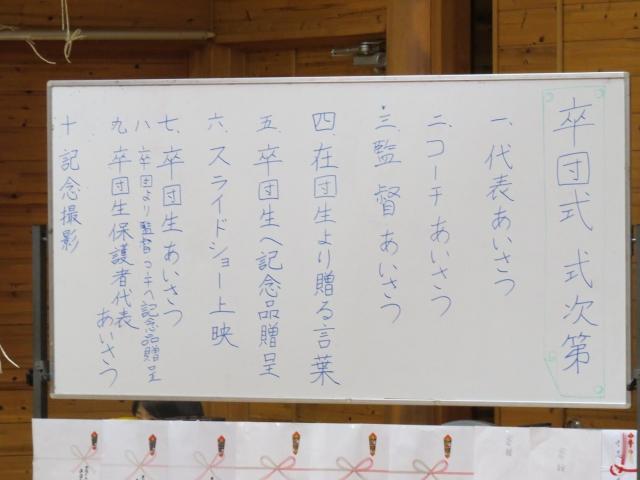 卒団式 式次第
一、代表あいさつ
二、コーチ あいさつ
三、監督 あいさつ
四、在団生より贈る言葉
五、卒団生へ記念品贈呈
六、スライドショー上映
七、卒団生 あいさつ
八、卒団より監督コーチへ記念品贈呈
九、卒団生保護者代表 あいさつ
十 記念撮影